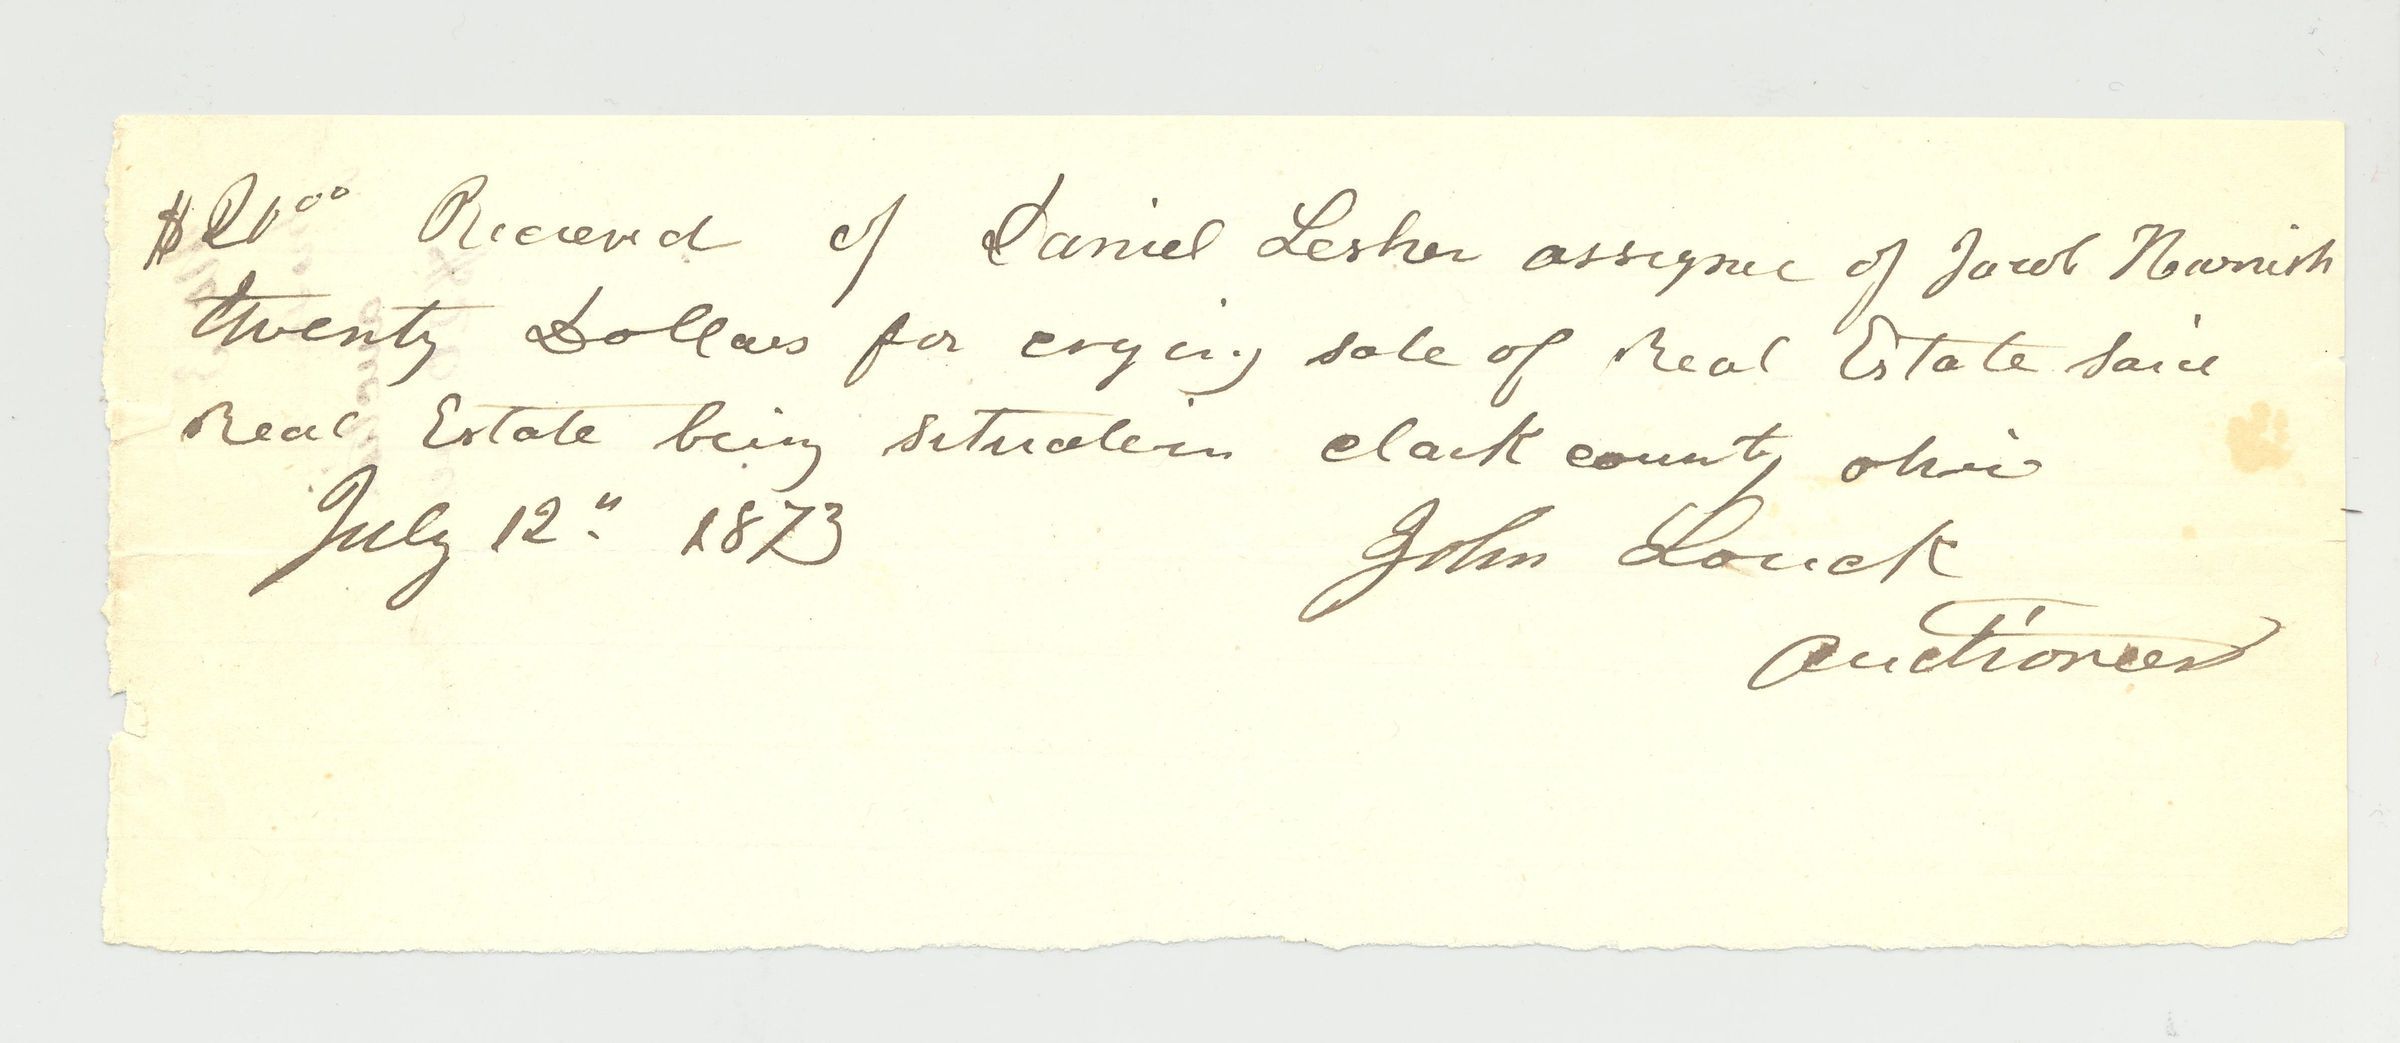 $20.00 Recieved of Daniel Lesher assignee of Jacob Harnish
twenty Dollars for crying sale of Real Estate said
Real Estate being situate in clark county ohio
July 12" 1873
John Louck
Auctioneer